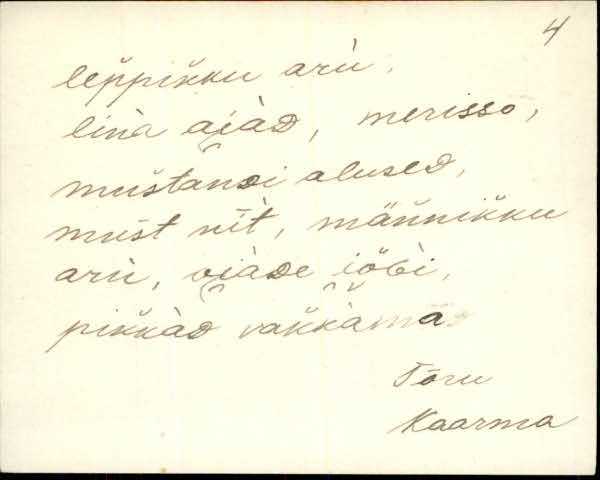 4
lep̆pik̆ku arù,
linà ai̯àd, merisso,
mus̆tandi alused,
must nī̀t, män̆nik̆ku
arù, oi̯àde i̯õ̭bì,
pik̆kàd vak̆kàma
Tõru
Kaarma